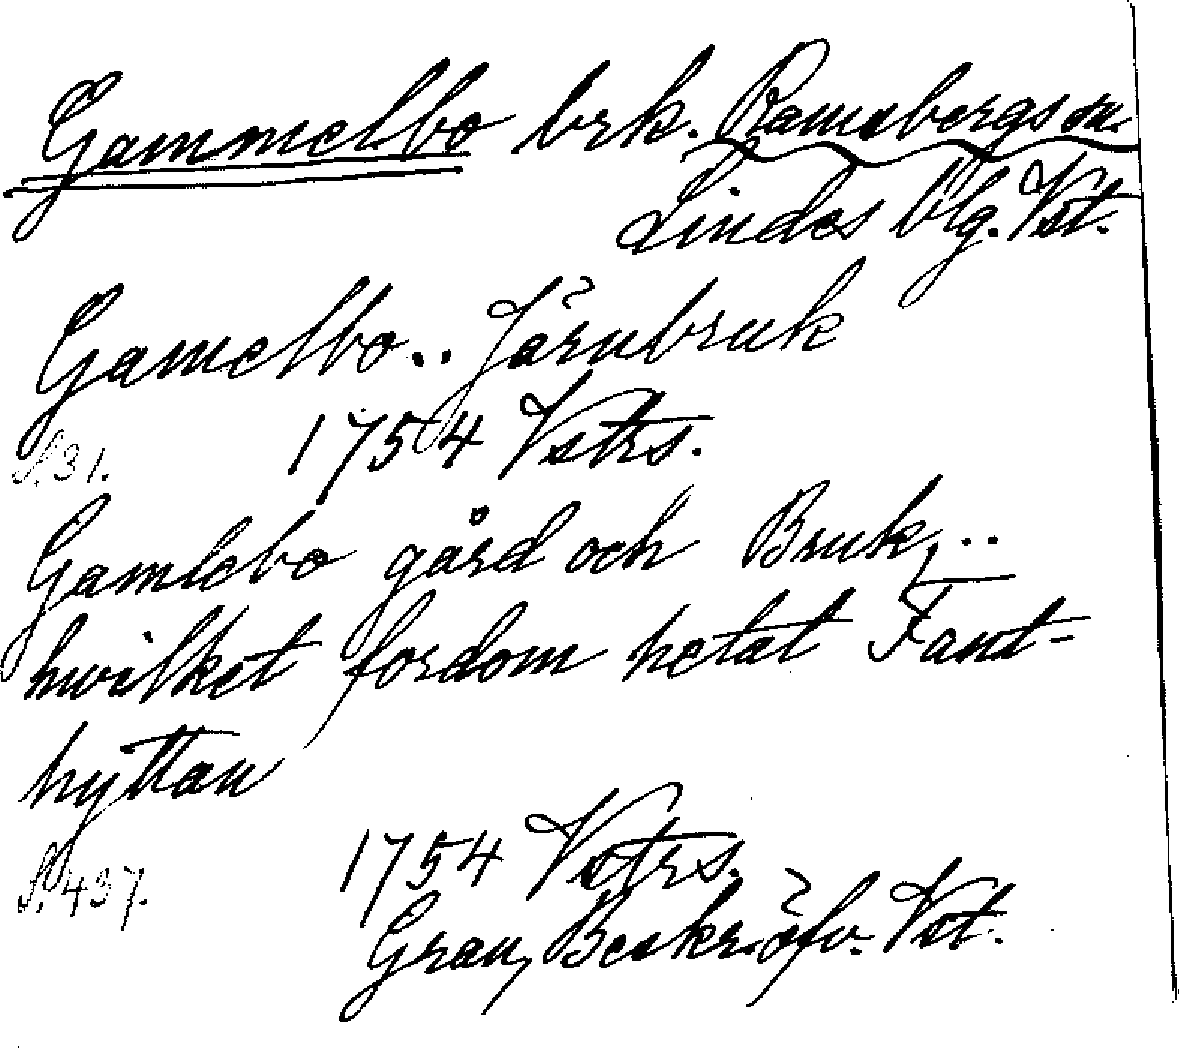 Gammelbo brk. Ramsbergs sn.
Lindes blg. Vst.
Gamelbo.. Järnbruk
S. 31. 1754 Vstrs.
Gamlebo gård och Bruk, ..
hwilket fordom hetat Fant-
hyttan
S. 437. 1754 Vstrs.
Grau, Beskr. öfv. Vst.